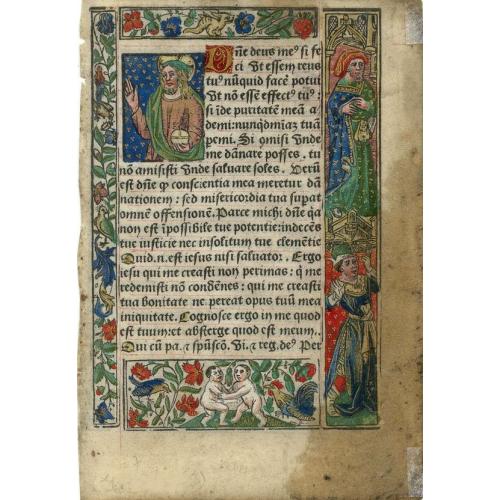 Dñe deus meꝰ si fe
ci vt essem reus
tuꝰ nũquid facẽ potui
vt nõ essẽ effectꝰ tuꝰ:
si ĩde puritatẽ meã a
demi: nunqd mĩaz tuã
pemi. Si cõmisi vnde
me dãnare posses. tu
nõ amisisti vnde saluare soles. Verũ
est dñe ꝙ conscientia mea meretur dã
nationem: sed misericordia tua supat
omnẽ offensionẽ. Parce michi dñe q̃a
non est ĩpossibile tue potentie: indecẽs
tue iusticie nec insolitum tue clemẽtie
Quid. n. est iesus nisi saluator. Ergo
iesu qui me creasti non perimas: q̃ me
redemisti nõ condẽnes: qui me creasti
tua bonitate ne pereat opus tuũ mea
iniquitate. Cognosce ergo in me quod
est tuum: et absterge quod est meum..
Qui cũ pa. ⁊ spũscõ. Vi. ⁊ reg. deꝰ Per